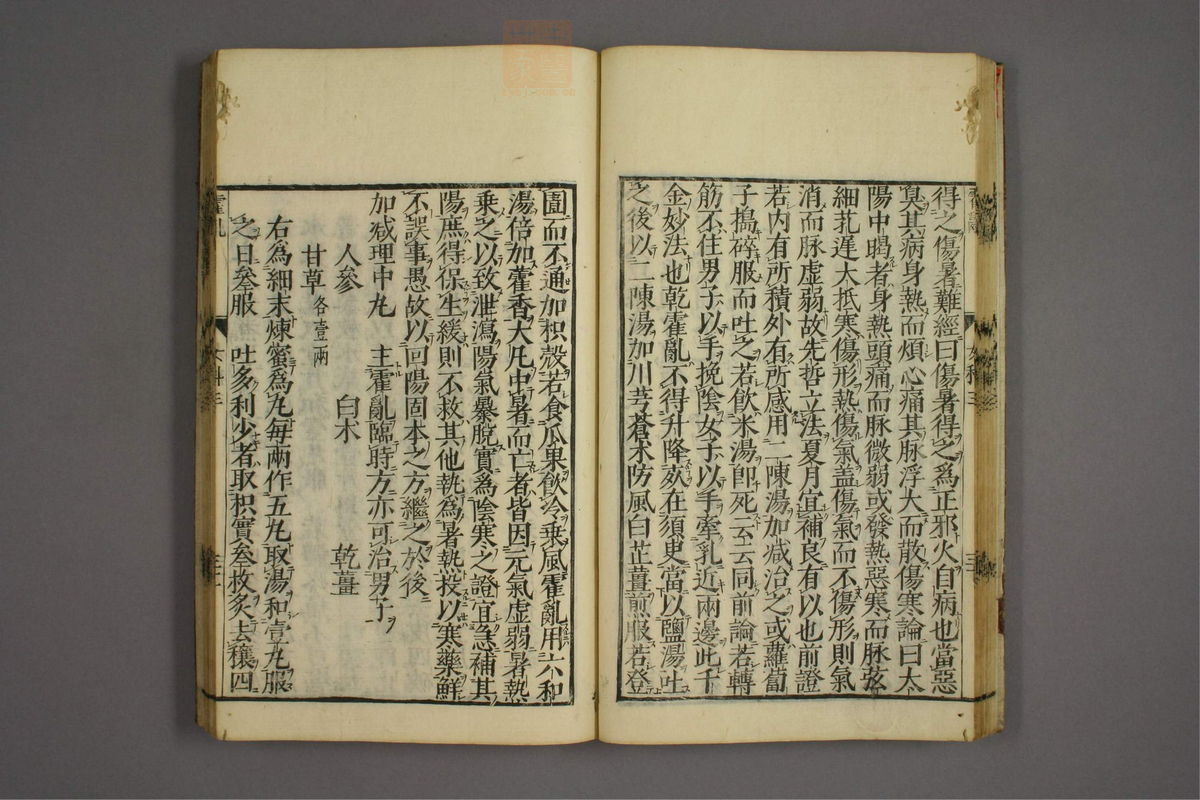 得之傷暑難經曰傷暑得之爲正邪火自病也當惡
臭其病身熱而煩心痛其脉浮大而散傷寒論曰太
陽中暍者身熱頭痛而脉微弱或發熱惡寒而脉弦
細芤遲大抵寒傷形熱傷氣盖傷氣而不傷形則氣
消而脉虚弱故先哲立法夏月宜補良有以也前證
若内有所積外有所感用二陳湯加减治之或蘿蔔
子搗碎服而吐之若飲米湯即死云云同前論若轉
筋不住男子以手挽陰女子以手牽乳近兩邊此千
金妙法也乾霍亂不得升降䒳在須臾當以鹽湯吐
之後以二陳湯加川芎蒼术防風白芷薑煎服若登
圊而不通加枳殼若食瓜果飲冷乗風霍亂用六和
湯倍加藿香大凡中暑而亡者皆因元氣虚弱暑熱
乗之以致泄瀉陽氣暴脱實爲陰寒之證宜急補其
陽庶得保生緩則不救其他執爲暑熱投以寒藥鮮
不誤事愚故以回陽固本之方繼之於後
加减理中丸 主霍亂臨時方亦可治男子
人參 白术 乾薑
甘草 各壹兩
右爲細末煉蜜爲丸毎兩作五丸取湯和壹丸服
之日叄服 吐多利少者取枳實叄枚炙去穰四
霍亂
女科三